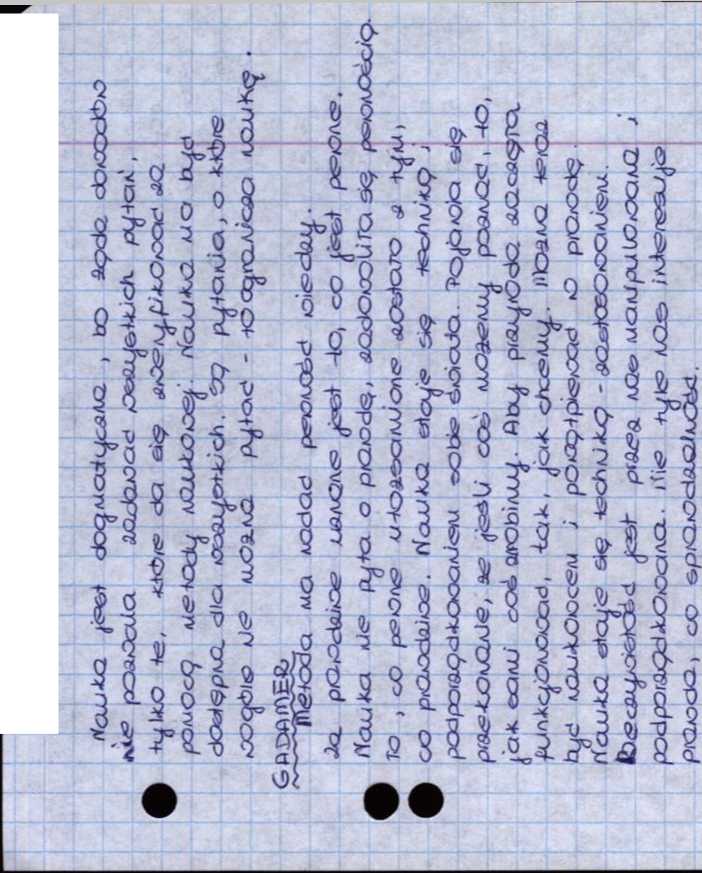 Nauka jest dogmatyczna, bo żąda dowodów
nie pozwala zadawać wszystkich pytań,
tylko te, które da się zweryfikować za
pomocą metody naukowej. Nauka ma być
dostępna dla wszystkich. Są pytania, o które
wogóle nie można pytać - to ogranicza naukę.
GADAMER
Metoda ma nadać pewność wiedzy.
Za prawdziwe uznane jest to, co jest pewne.
Nauka nie pyta o prawdę, zadowoliła się pewnością.
To, co pewne utożsamione zostało z tym,
co prawdziwe. Nauka staje się techniką,
podporządkowaniem sobie świata. Pojawia się
przekonanie, że jeśli coś możemy poznać, to,
jak sami coś zrobimy. Aby przyroda zaczęła
funkcjonować, tak, jak chcemy. Można teraz
być naukowcem i powątpiewać w prawdę.
Nauka staje się techniką - zastosowaniem.
Rzeczywistość jest przez nas manipulowana i
podporządkowana. Nie tyle nas interesuje
prawda, co sprawdzalność.